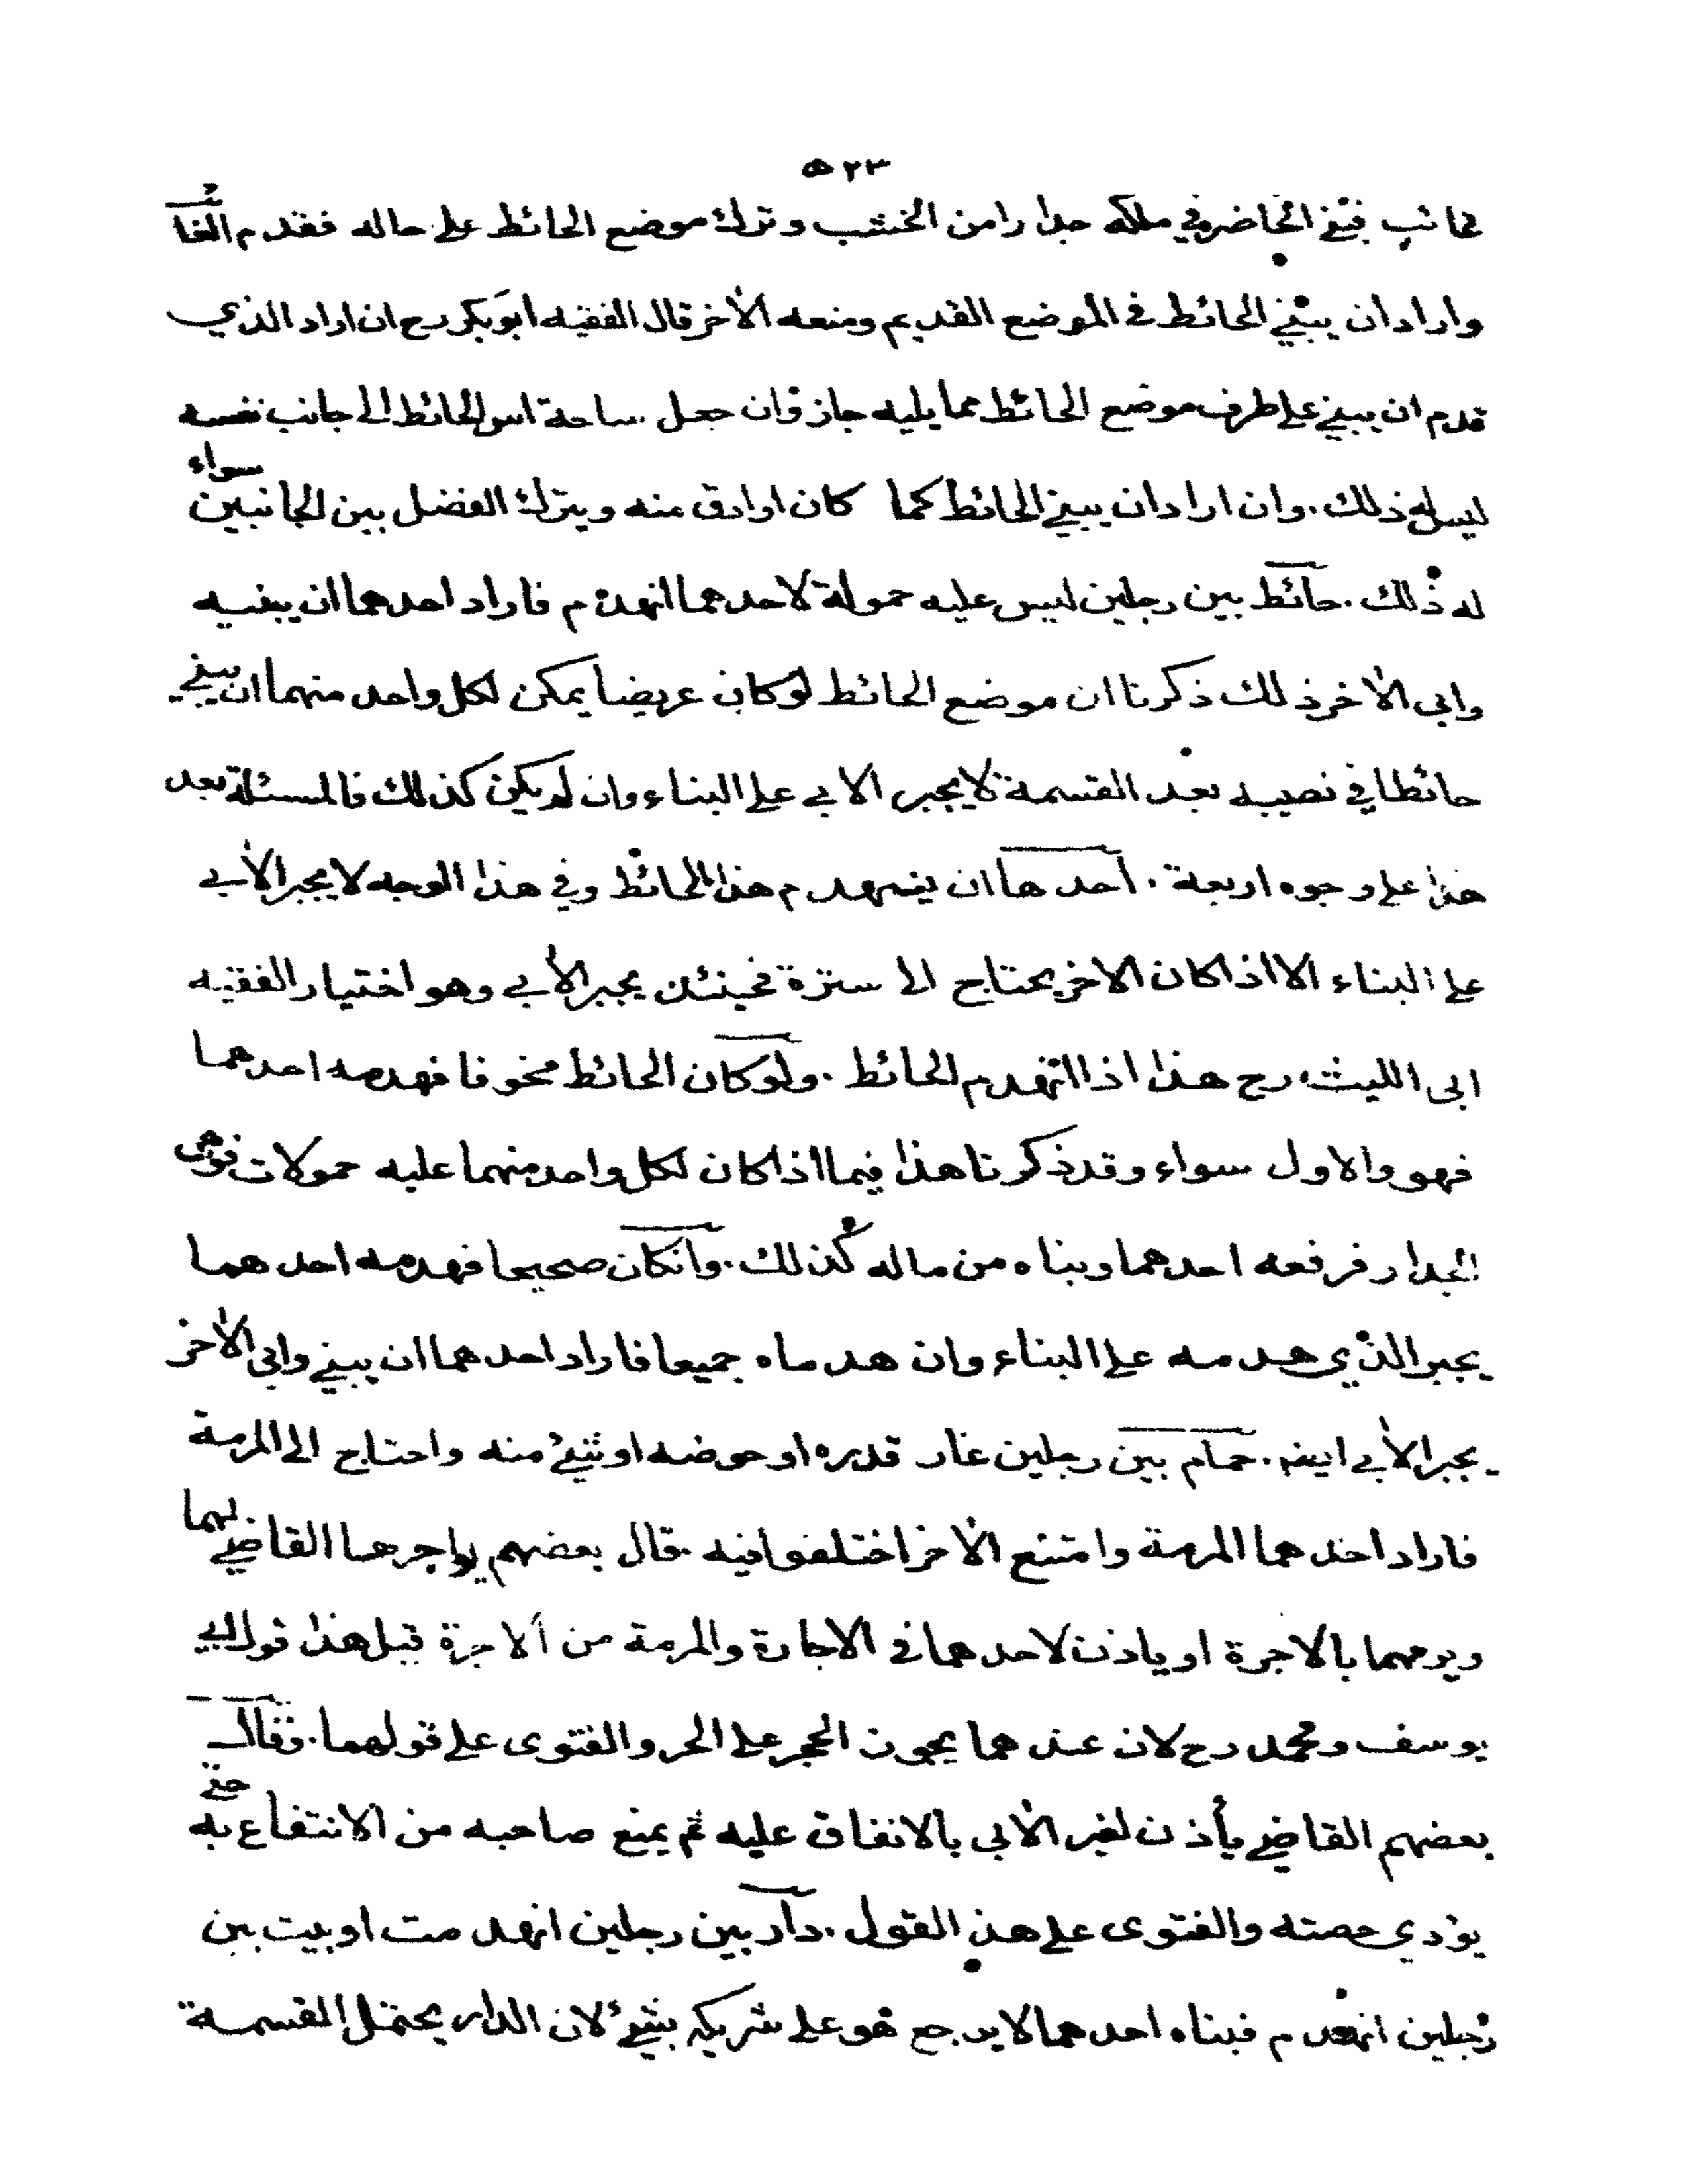 ٥٢٣
غائب فبنى الحاضر في ملكه جدارا من الخشب وترك موضع الحائط على حاله فقدم الغائب
واراد ان يبني الحائط في الموضع القديم ومنعه الآخر قال الفقيه ابو بكر رح ان اراد الذي
قدم ان يبني على طرف موضع الحائط مما يليه جاز وان جعل ساحة اس الحائط الى جانب نفسه
ليس له ذلك . وان اراد ان يبني الحائط كما كان او ادق منه ويترك الفضل بين الجانبين سواء
له ذلك . حائط بين رجلين ليس عليه حمولة لاحدهما انهدم فاراد احدهما ان يبنيه
وابى الآخر ذلك ذكرنا ان موضع الحائط لو كان عريضا يمكن لكل واحد منهما ان يبني
حائطا في نصيبه بعد القسمة لا يجبر الابي على البناء وان لم يكن كذلك فالمسئلة بعد
هذا على وجوه اربعة . احدها ان ينهدم هذا الحائط وفي هذا الوجه لا يجبر الآبي
على البناء الا اذا كان الاخر يحتاج الى سترة فحينئذ يجبر الآبي وهو اختيار الفقيه
ابى الليث رح هذا اذا انهدم الحائط . ولو كان الحائط مخوفا فهدمه احدهما
فهو والاول سواء وقد ذكرنا هذا فيما اذا كان لكل واحد منهما عليه حمولات فوهى
الجدار فرفعه احدهما وبناه من ماله كذلك . وانكان صحيحا فهدمه احدهما
يجبر الذي هدمه على البناء وان هدماه جميعا فاراد احدهما ان يبني وابى الآخر
يجبر الآبي ايضه . حمام بين رجلين غار قدره او حوضه او شئ منه واحتاج الى المرمة
فاراد احدهما المرمة وامتنع الآخر اختلفوا فيه . قال بعضهم يواجرها القاضي لهما
ويرمهما بالاجرة او ياذن لاحدهما في الاجارة والمرمة من الاجرة قيل هذا قول ابي
يوسف ومحمد رح لان عندهما يجوز الحجر على الحر والفتوى على قولهما . وقال
بعضهم القاضي يأذن لغير الآبى بالانفاق عليه ثم يمنع صاحبه من الانتفاع به حتى
يؤدي حصته والفتوى على هذا القول . دار بين رجلين انهدمت او بيت بين
رجلين انهدم فبناه احدهما لا يرجع هو على شريكه بشئ لان الدار يحتمل القسمة